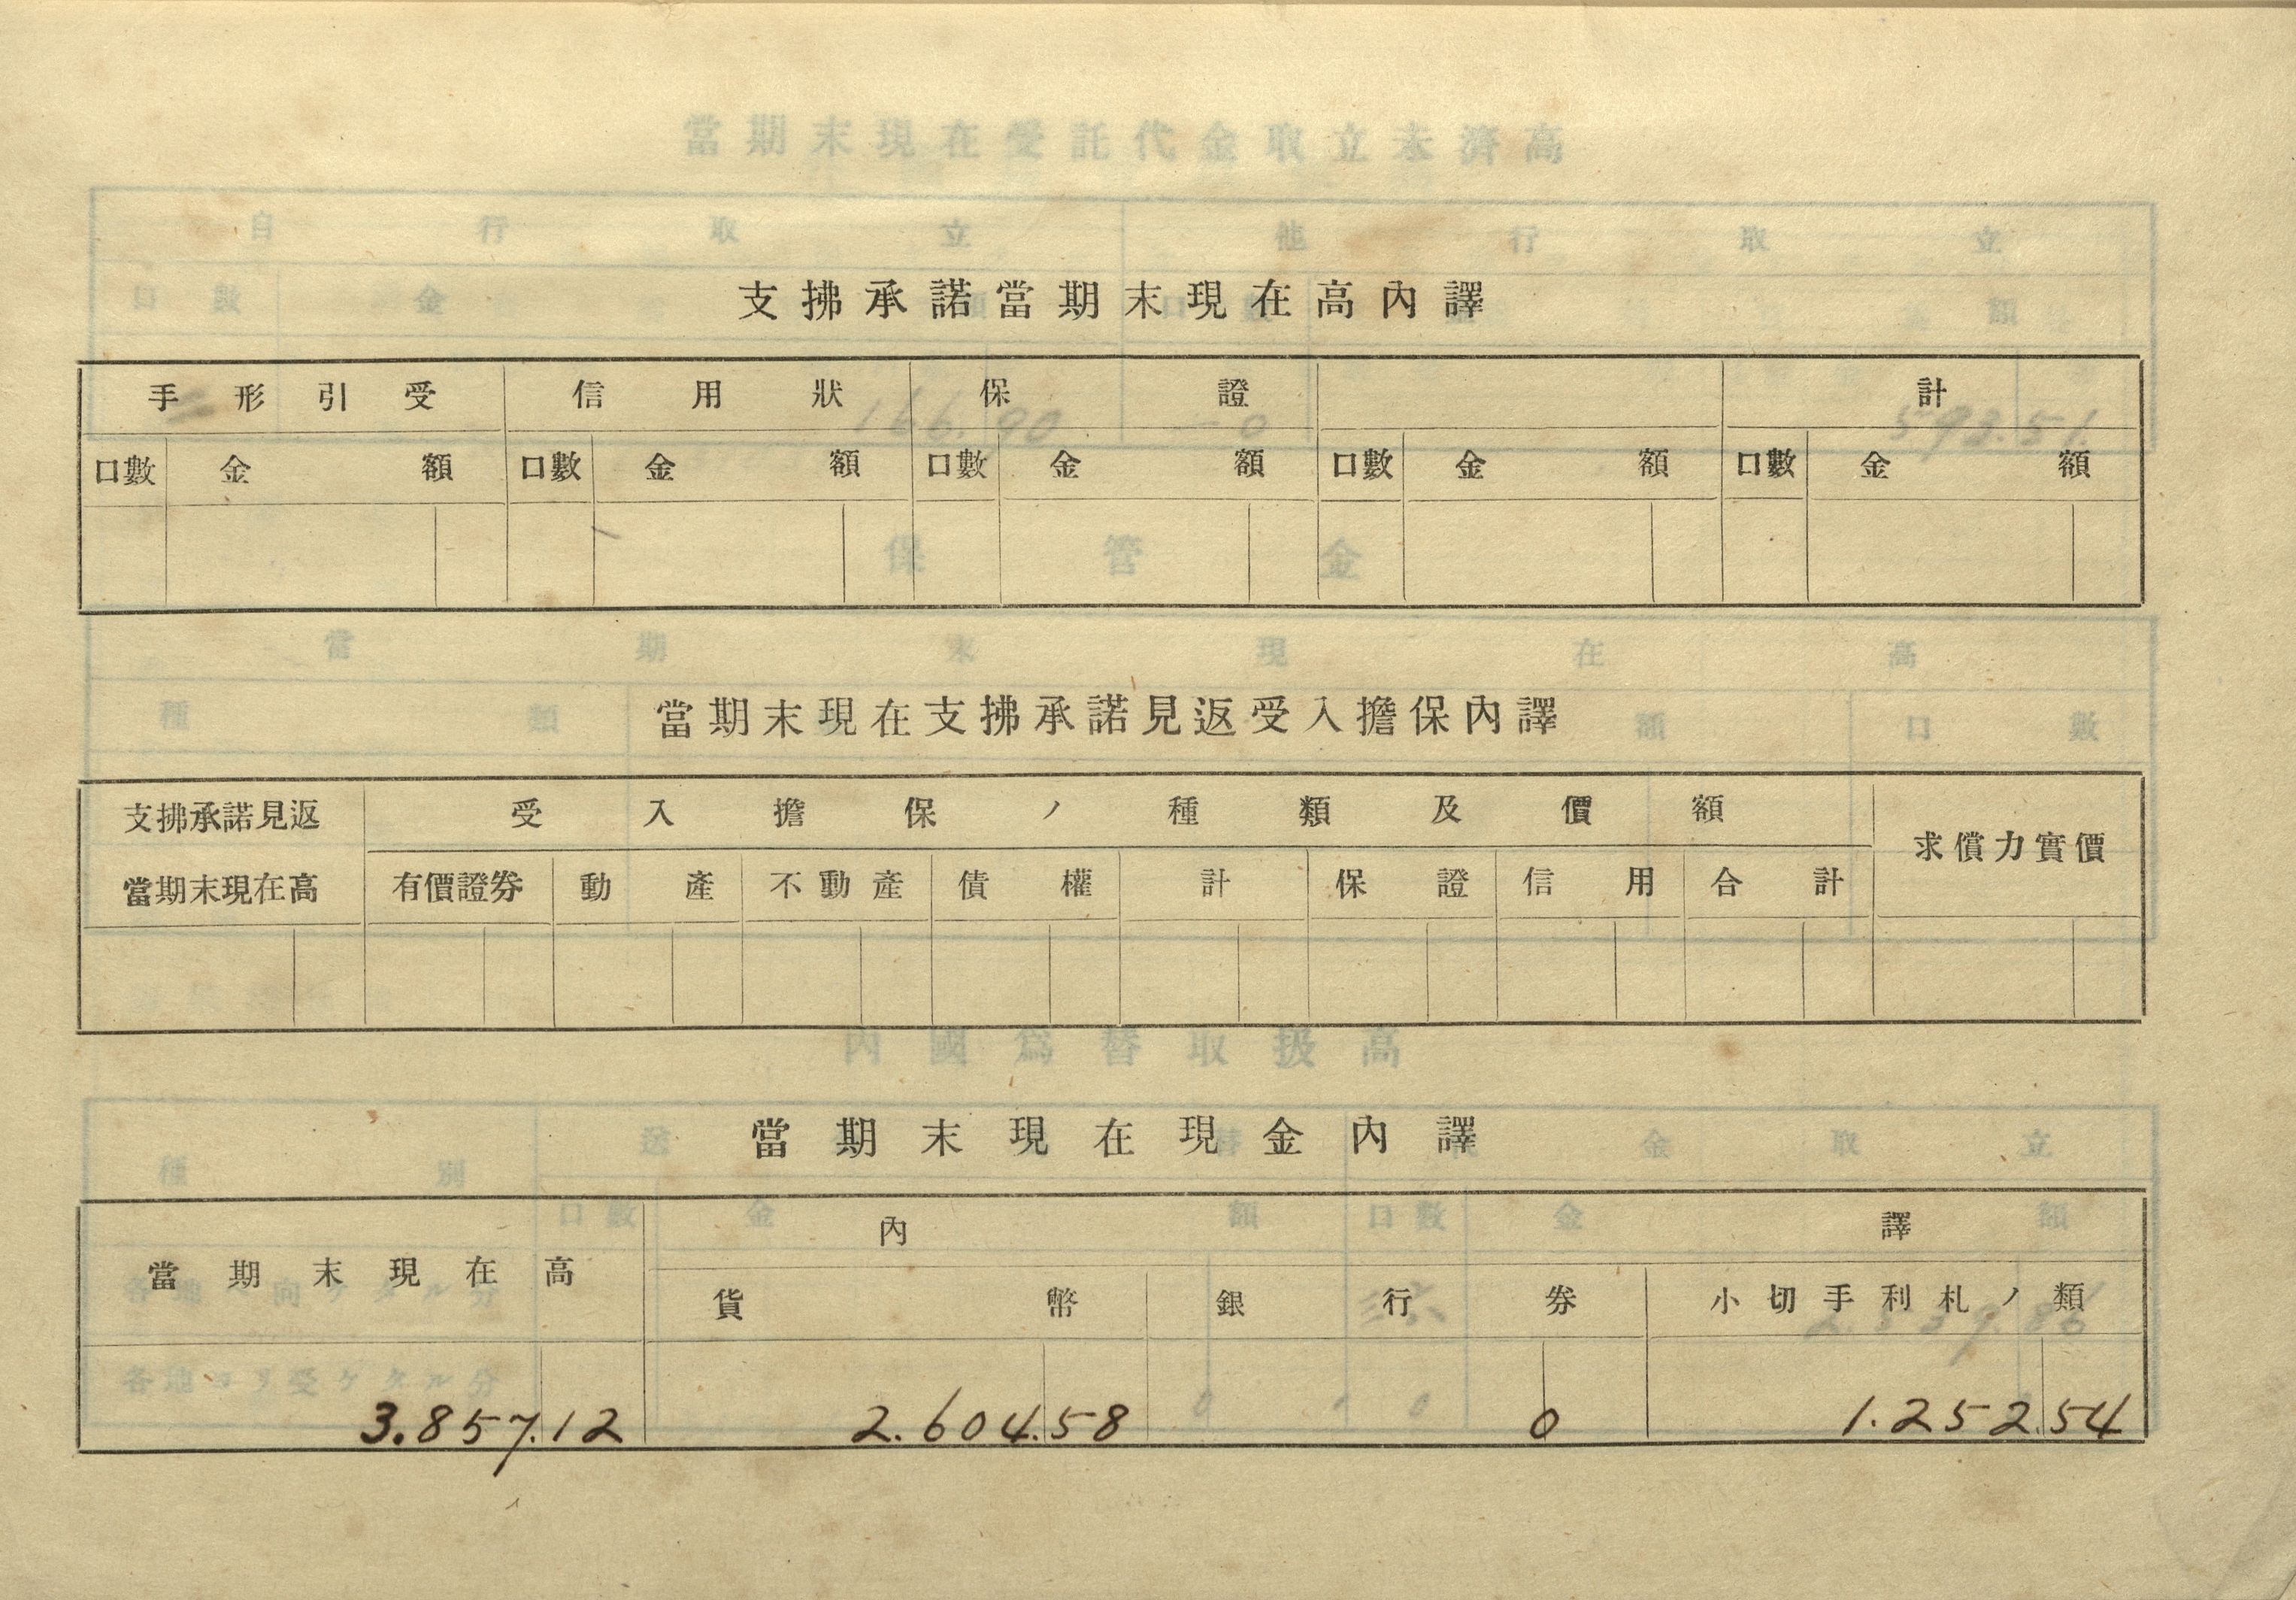 支拂承諾當期末現在高內譯
手形引受 信用狀 保證 計
口數 金額 口數 金額 口數 金額 口數 金額 口數 金額
當期末現在支拂承諾見返受入擔保內譯
支拂承諾見返 受入擔保ノ種類及價額 求償力實價
當期末現在高 有價證券 動產 不動產 債權 計 保證 信用 合計
當期末現在現金內譯
當期末現在高 內譯
貨幣 銀行券 小切手利札ノ類
3.857.12 2.604.58 0 1.252.54